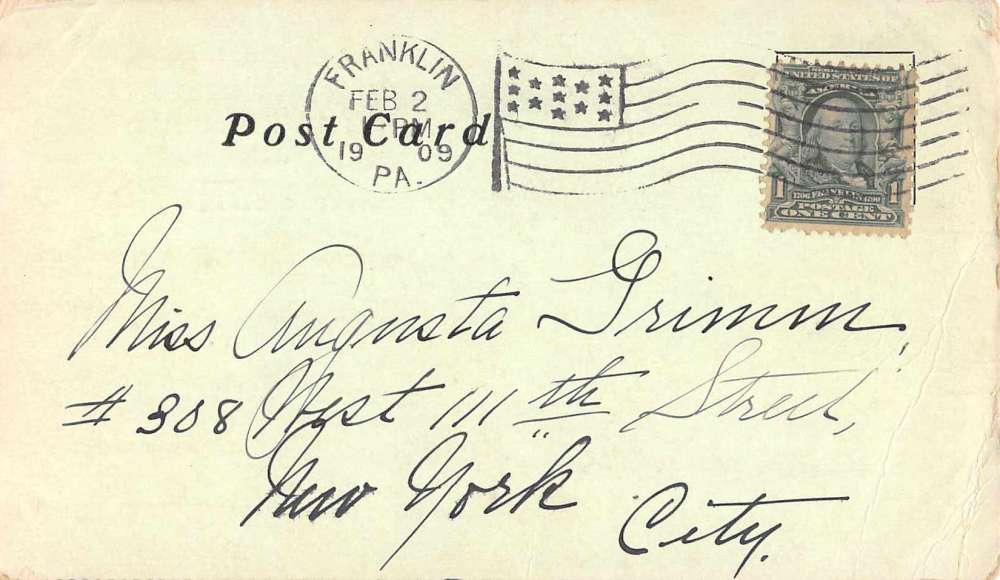 FRANKLIN
FEB 2
PM
1909
PA.
Post Card
UNITED STATES OF
AMERICA
1 1
FRANKLIN
POSTAGE
ONE CENT
Miss Augusta Grimm,
# 308 West 111th Street,
New York
City.